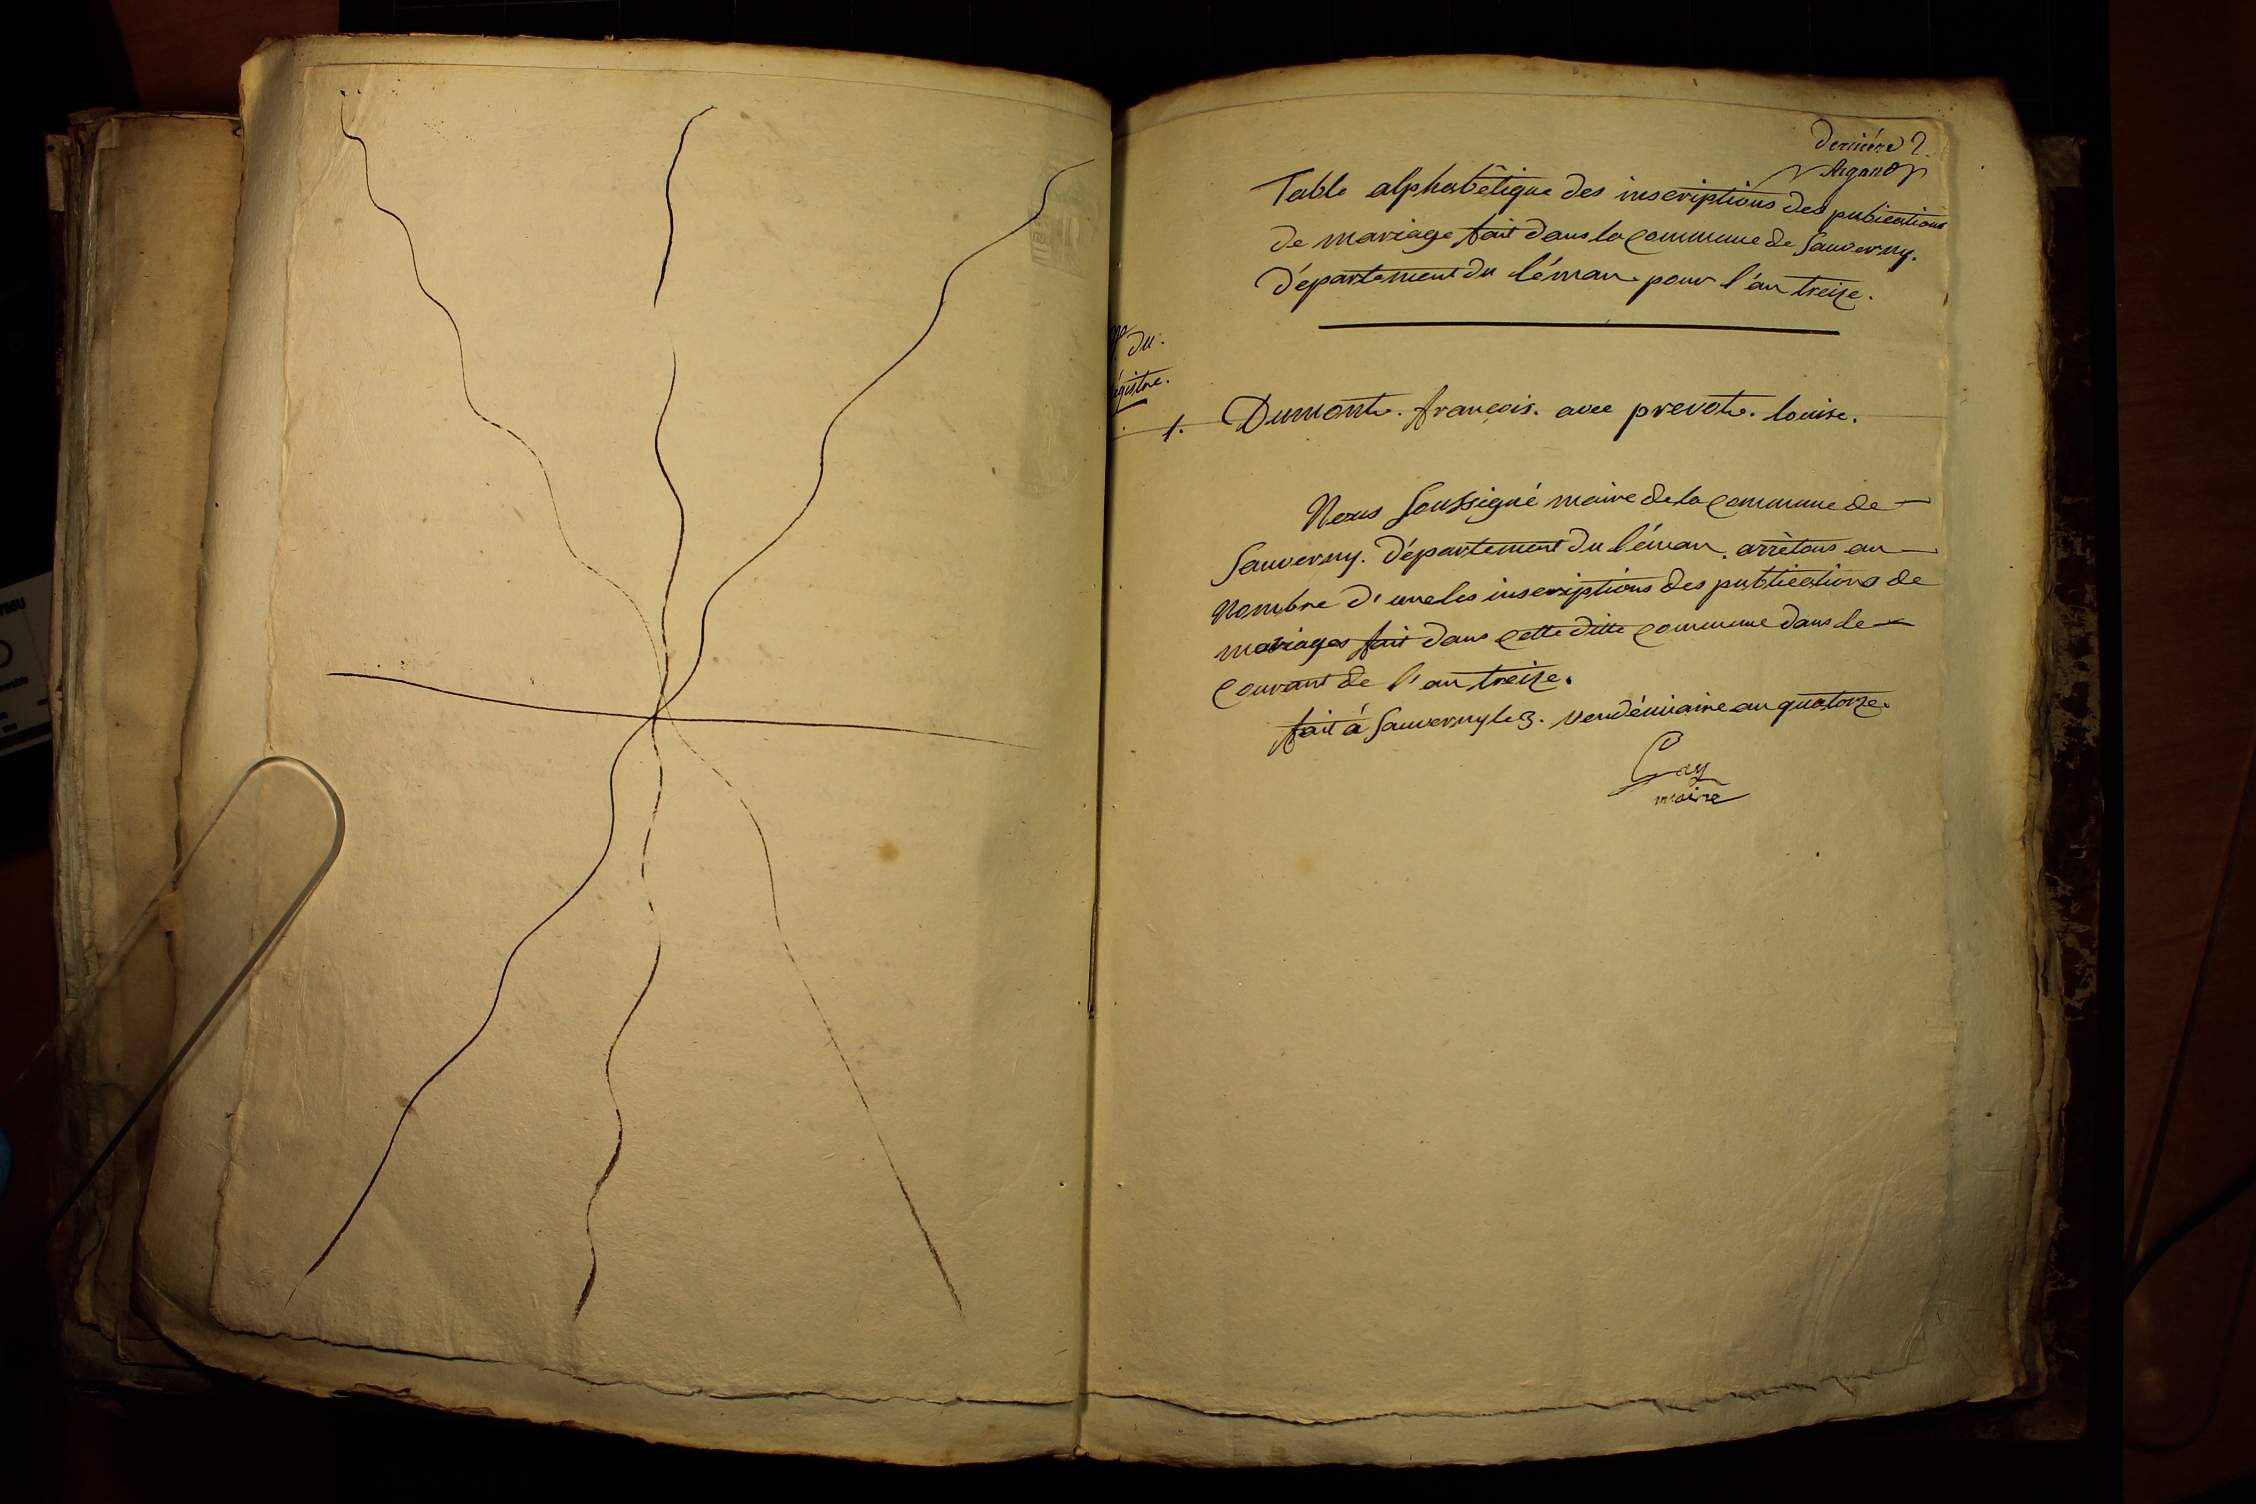 dernière 2
Argand
Table alphabêtique des inscriptions des pubications
de mariage fait dans la commune de Sauverny.
département du léman pour l'an treize.
No du.
Régistre.
1. Dumont. françois. avec prevot. louise.
Nous Soussigné maire de la commune de
Sauverny. département du léman. arrêtons au
Nombre d'une les inscriptions des publications de
mariages fait dans cette ditte commune dans le
Courant de l'an treize.
fait à Sauverny le 3. vendémiaire an quatorze.
Cay
maire